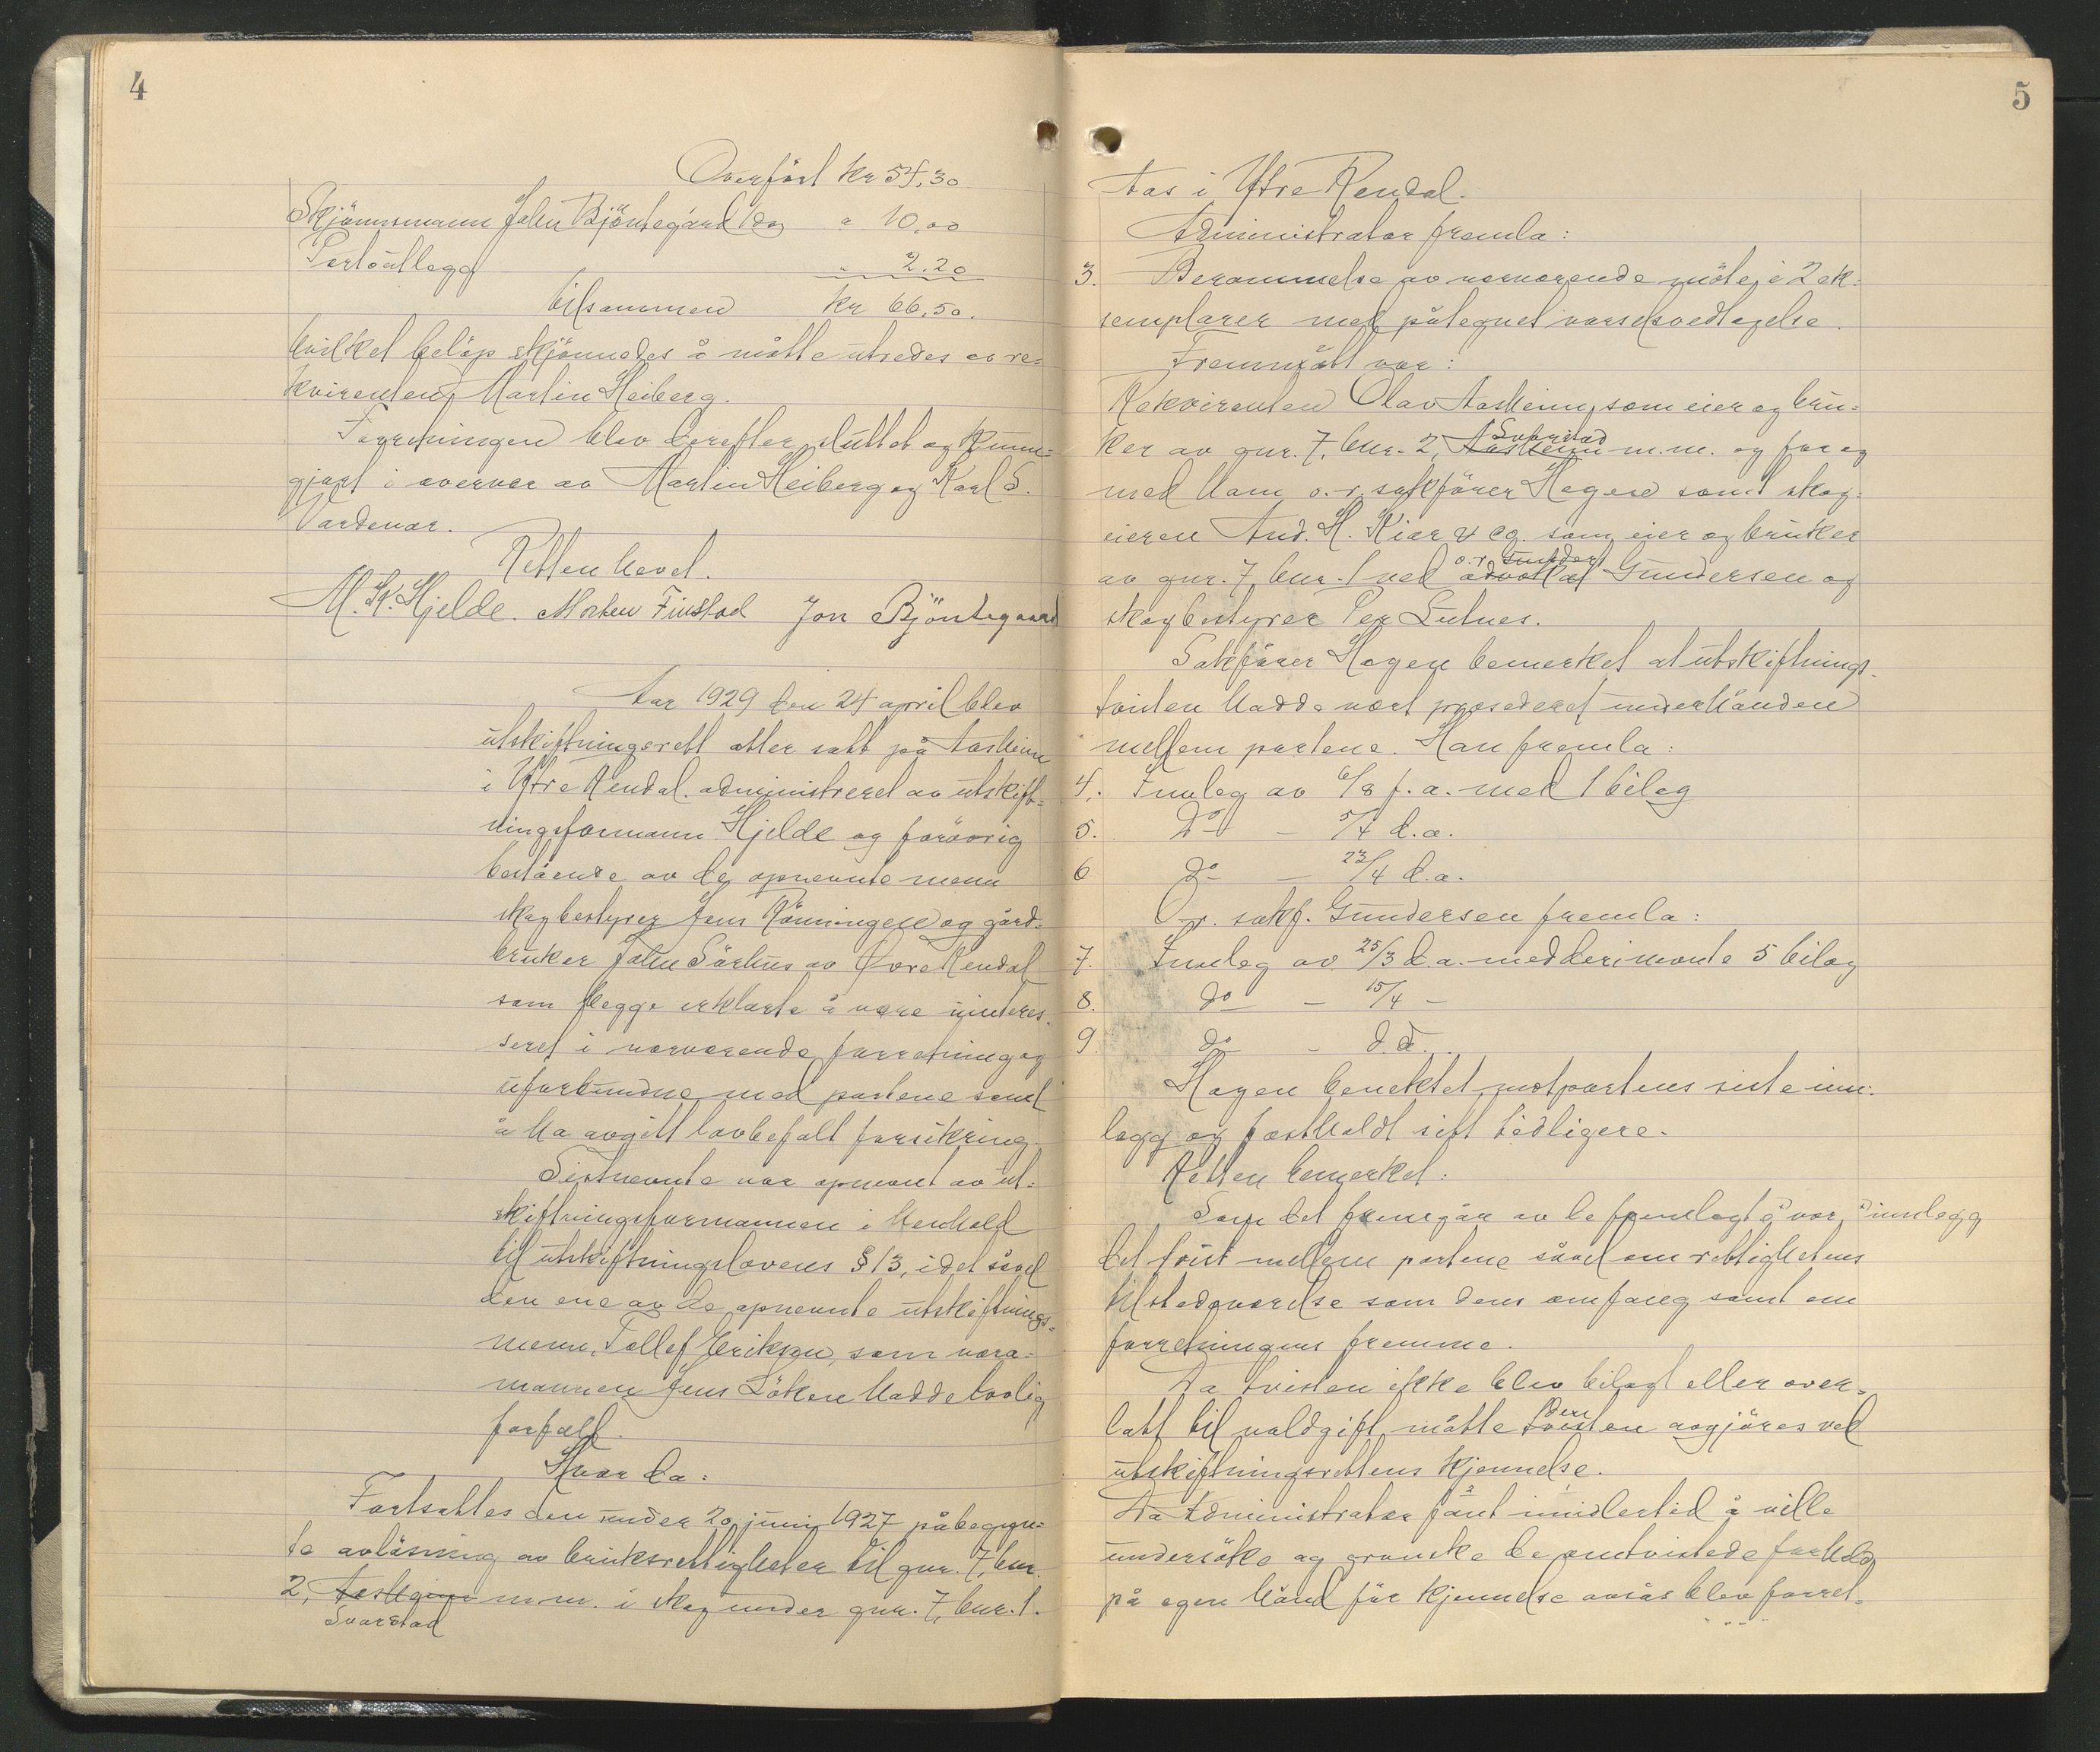 4
Overført kr 54,30
Skjönnsmann John Bjöntegård 1 dag " 10,00
Portoutlegg " 2.20
tilsammen kr 66,50.
hvilket belöp skjönnedes å måtte utredes av re=
kvirenten, Martin Heiberg.
Forretningen blev derefter sluttet og kunn=
gjort i overvær av Martin Heiberg og Karl S.
Vardenær.
Retten hevet.
M. Kr. Hjelde. Morten Finstad Jon Bjöntegaard
Aar 1929 den 24 april blev
utskiftningsrett atter satt på Aasheim
i Ytre Rendal. administreret av utskift=
ningsformann Hjelde og forövrig
bestående av de opnevnte menn
skogbestyrer Jens Rönningen og gård=
bruker John Sörhus av Øvre Rendal
som begge erklærte å være uinteres=
seret i nærværende forretning og
uforbundne med partene samt
å ha avgitt lovbefalt forsikring.
Sistnevnte var opnevnt av ut=
skiftningsformannen i henhold
til utskiftningslovens § 13, idet såvel
den ene av de opnevnte utskiftnings=
menn, Tollef Eriksen, som vara=
mannen Jens Löken hadde lovlig
forfall.
Hvor da:
Fortsattes den under 20 juni 1927 påbegyn=
te avlösning av bruksrettigheter til gnr. 7, bnr.
2, Aasheim m.m. i skog under gnr. 7, bnr. 1.
Svarstad
5
Aas i Ytre Rendal.
Administrator fremla:
3. Berammelse av nærværende möte i 2 ek=
semplarer med påtegnet varselsvedtagelse.
Fremmött var:
Rekvirenten Olav Aasheim, som eier og bru=
Svarstad
ker av gnr. 7, bnr. 2, Aasheim m.m. og for og
med ham o.r. sakförer Hagen samt skog=
eieren And. H. Kiær & co. som eier og bruker
o.r.
av gnr. 7, bnr. 1 ved advokat Gundersen og
skogbestyrer Per Lutnes.
Sakförer Hagen bemerket at utskiftnings=
tvisten hadde vært prosederet underhånden
mellem partene. Han fremla:
4. Innleg av 6/8 f.a. med 1 bilag
5. Do - 5/4 d.a.
6 do - 23/4 d.a.
O.r. sakf. Gundersen fremla:
7. Innleg av 25/3 d.a. med derinevnte 5 bilag
8. do - 15/4 -
9. do - d.d.
Hagen benektet motpartens siste inn=
legg og fastholdt sitt tidligere.
Retten bemerket:
Som det fremgår av de fremlagte innlegg var
det tvist mellem partene såvel om rettighetens
tilstedeværelse som dens omfang samt om
forretningens fremme.
Da tvisten ikke blev bilagt eller over=
den
latt til voldgift måtte tvisten avgjöres ved
utskiftningsrettens kjennelse.
Da Administrator fant imidlertid å ville
undersöke og granske de omtvistede forhold
på egen hånd för kjennelse avsas blev forret=